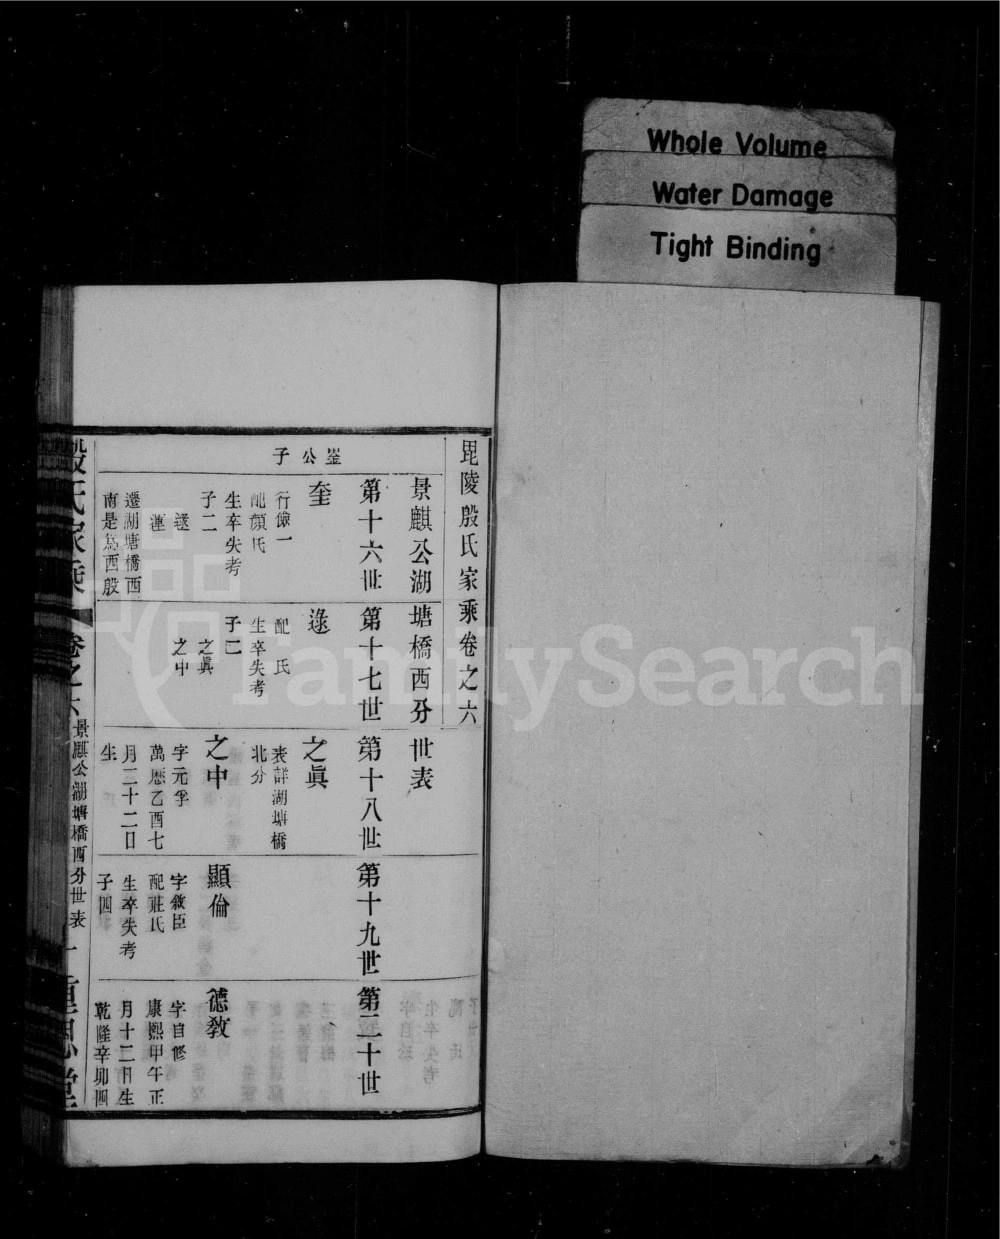 Whole Volume
Water Damage
Tight Binding
毘陵殷氏家乘卷之六
景麒公湖塘橋西分世表
第十六世
第十七世
第十八世
第十九世
第二十世
公子
奎
行儉一
配顏氏
生卒失考
子二
遷湖塘橋西
南是為西殷
逯
配 氏
生卒失考
子二
之眞
之中
之眞
表詳湖塘橋
北分
之中
字元孚
萬厯乙酉七
月二十二日
生
顯倫
字敘臣
配莊氏
生卒失考
子四
德敎
字自修
康熙甲午正
月十二日生
乾隆辛卯四
殷氏家乘
卷之六
景麒公湖塘橋西分世表
一
重思堂
FamilySearch